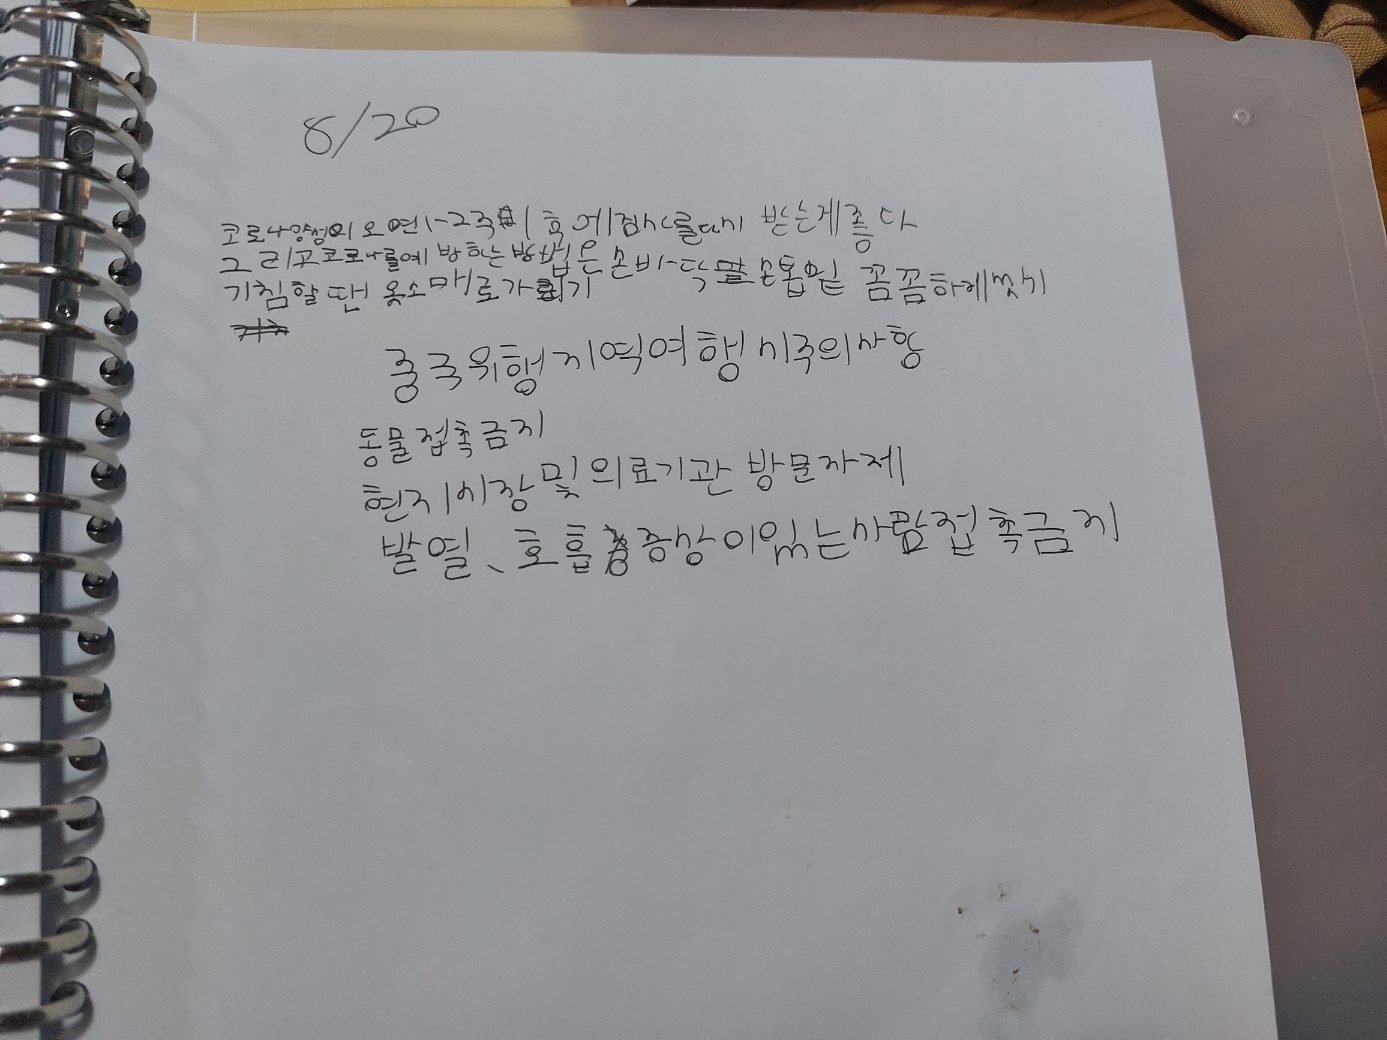 8/20
코로나양성이 오면 1-2주 후에 검사를 다시 받는게 좋다
그리고 코로나를 예방하는 방법은 손바닥 손톱밑 꼼꼼하게 씻기
기침할 땐 옷소매로 가리기
중국위험지역여행시주의사항
동물접촉금지
현지시장 및 의료기관 방문자제
발열、호흡증상이있는사람접촉금지